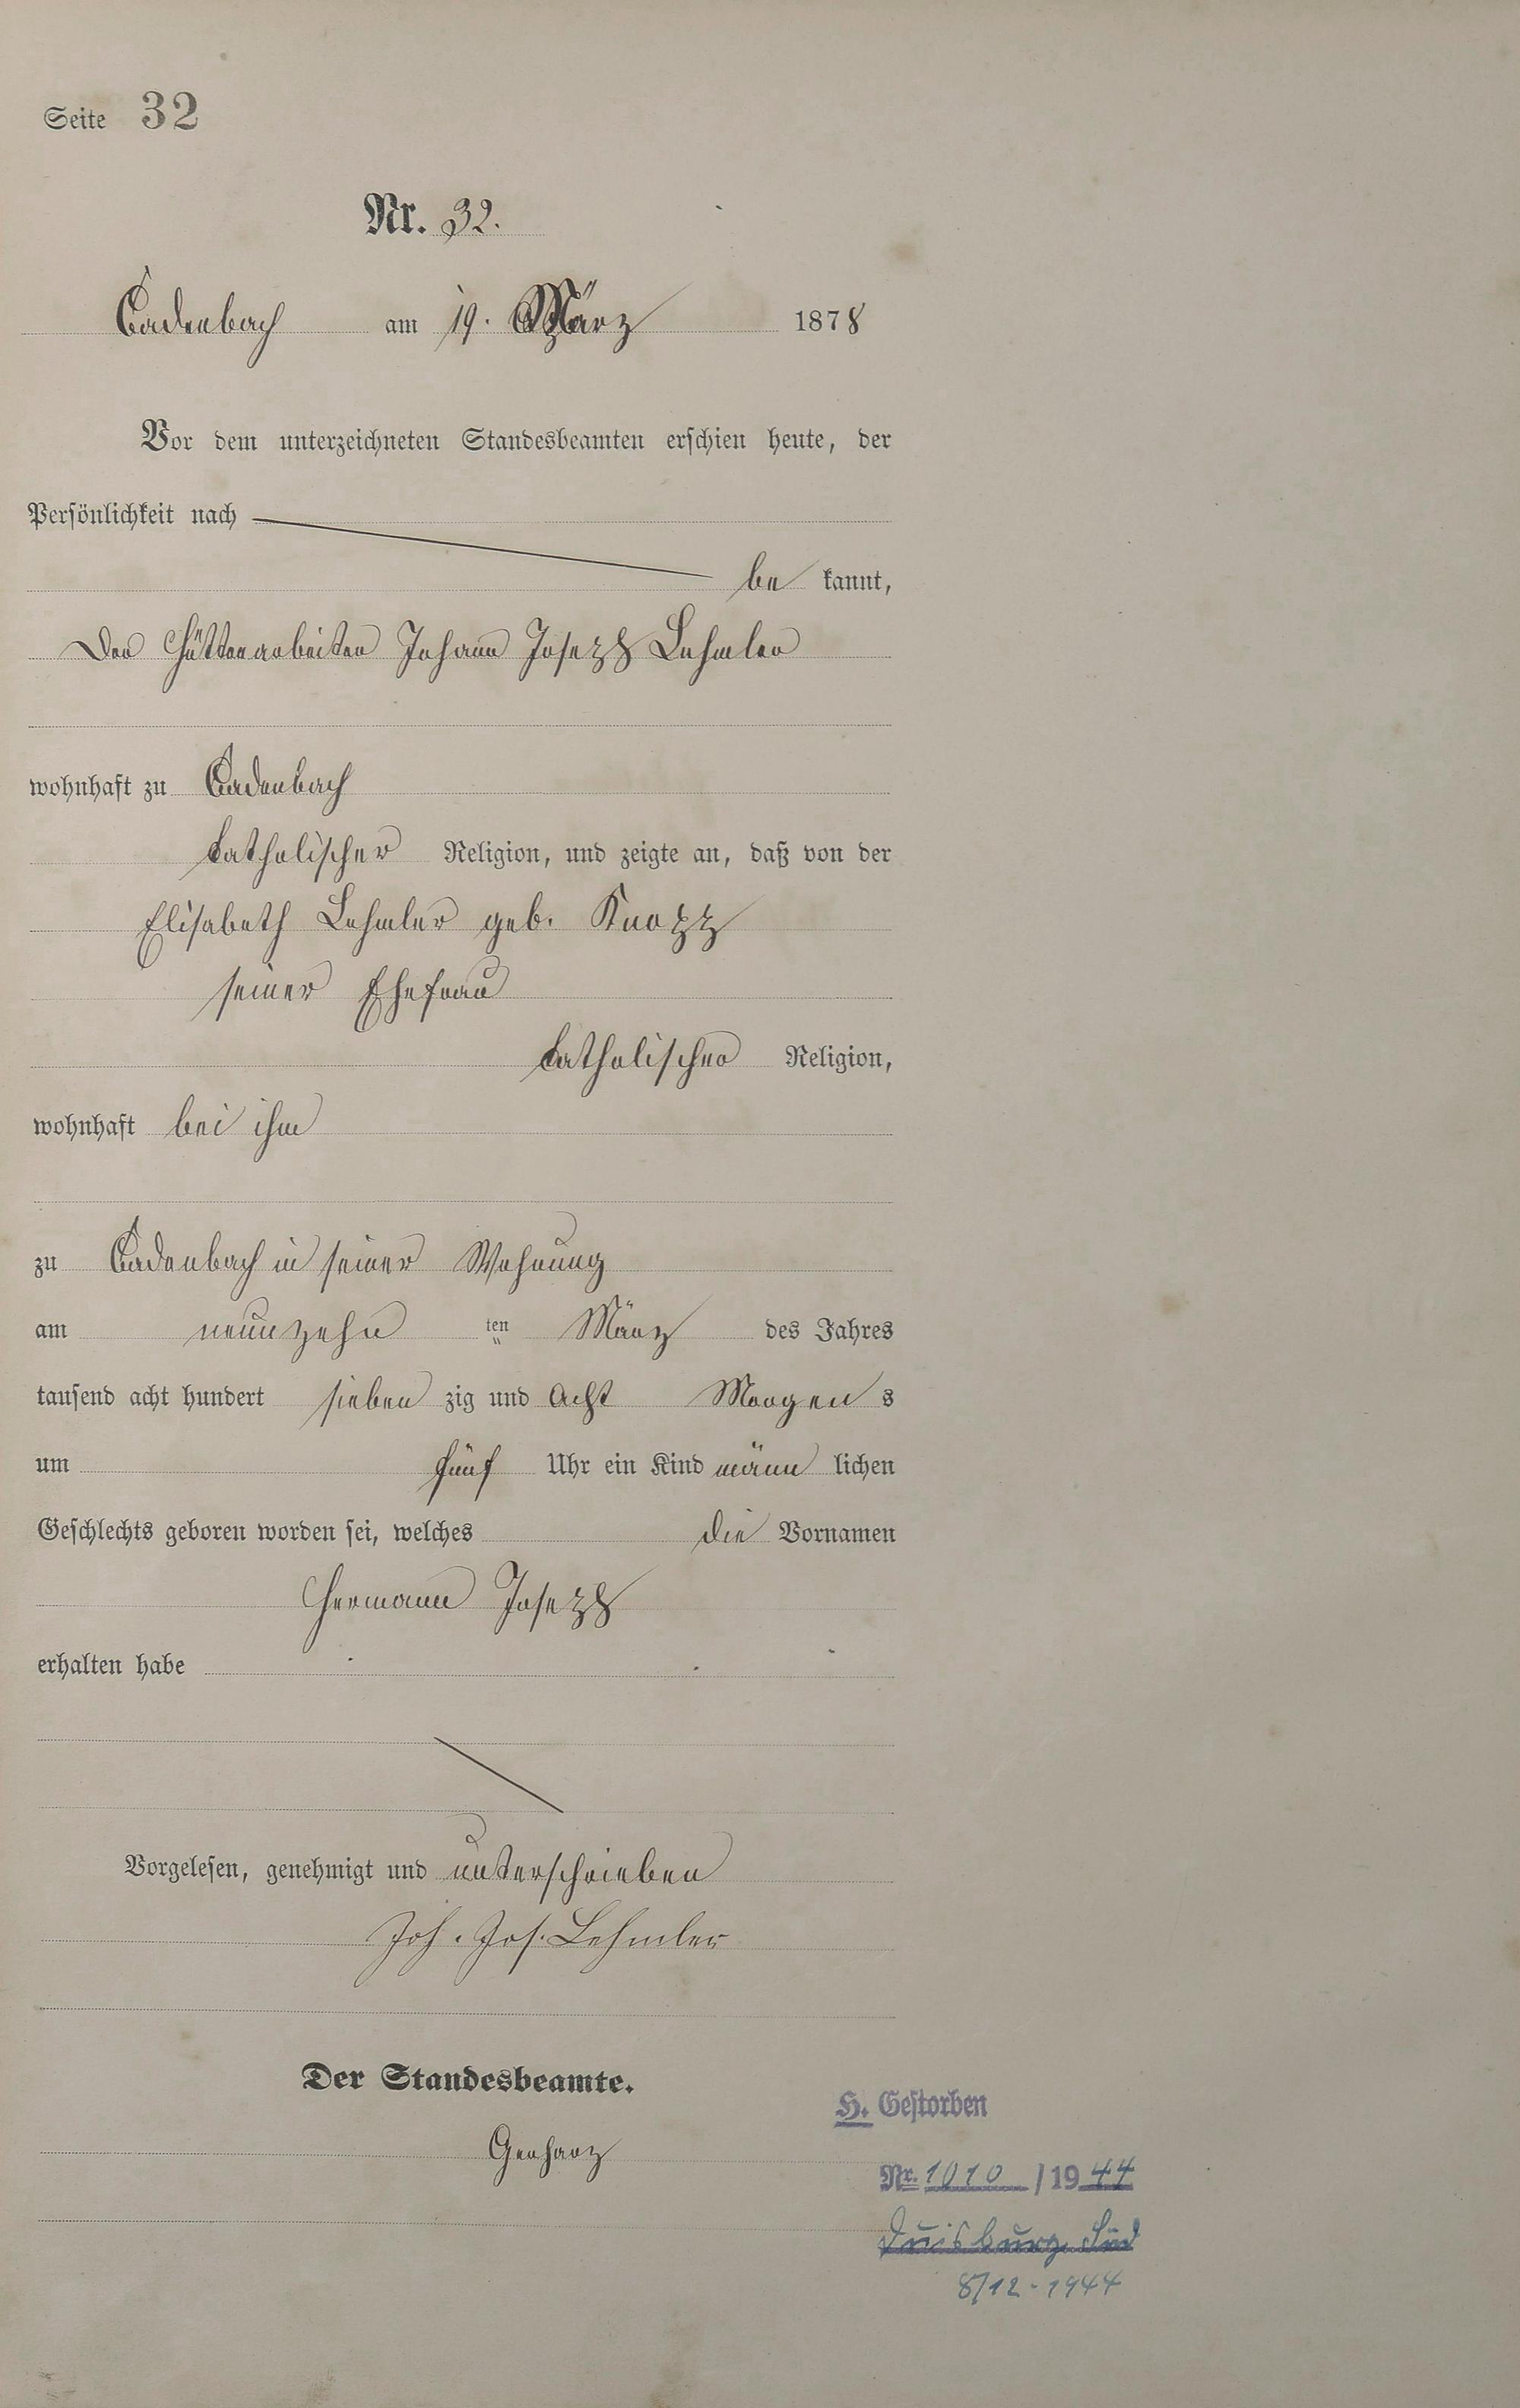 Seite 32
Nr. 32.
Cadenbach am 19. März 1878
Vor dem unterzeichneten Standesbeamten erschien heute, der
Persönlichkeit nach
be kannt,
Der Hüttenarbeiter Johann Joseph Lehmler
wohnhaft zu Cadenbach
katholischer Religion, und zeigte an, daß von der
Elisabeth Lehmler geb. Knopp
seiner Ehefrau
katholischer Religion,
wohnhaft bei ihm
zu Cadenbach in seiner Wohnung
am neunzehn ten März des Jahres
tausend acht hundert sieben zig und Acht Morgen s
um fünf Uhr ein Kind männ lichen
Geschlechts geboren worden sei, welches die Vornamen
Hermann Joseph
erhalten habe
Vorgelesen, genehmigt und unterschrieben
Joh. Jos. Lehmler
Der Standesbeamte.
Gerharz
H. Gestorben
Nr. 1010 / 1944
Duisburg Süd
8/12-1944